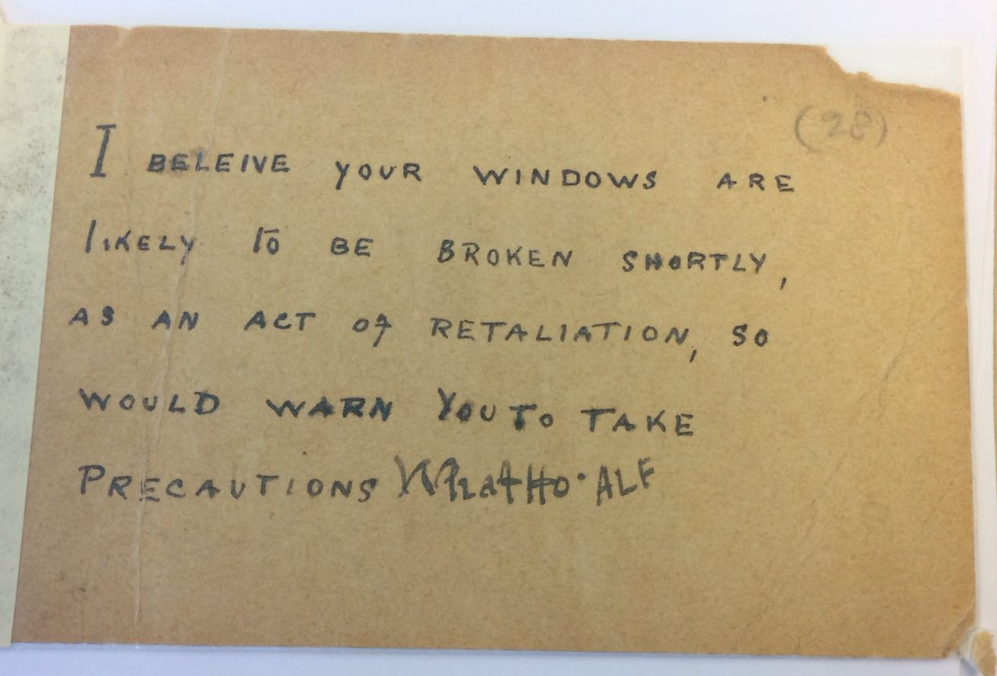 (28)
I BELEIVE YOUR WINDOWS ARE
LIKELY TO BE BROKEN SHORTLY,
AS AN ACT OF RETALIATION, SO
WOULD WARN YOU TO TAKE
PRECAUTIONS